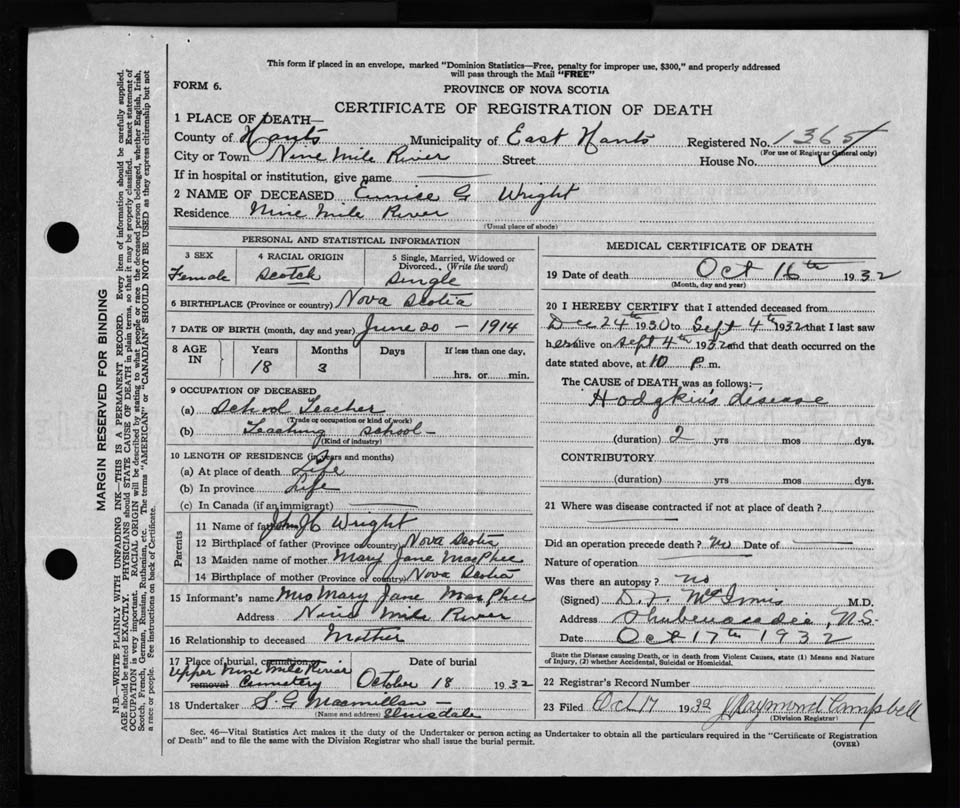 This form if placed in an envelope, marked "Dominion Statistics—Free, penalty for improper use, $300," and properly addressed
will pass through the Mail "FREE"
FORM 6.
PROVINCE OF NOVA SCOTIA
CERTIFICATE OF REGISTRATION OF DEATH
1 PLACE OF DEATH—
County of Hants Municipality of East Hants Registered No. 1365
(For use of Registrar General only)
City or Town Nine Mile River Street House No.
If in hospital or institution, give name
2 NAME OF DECEASED Eunice G Wright
Residence Nine Mile River
(Usual place of abode)
PERSONAL AND STATISTICAL INFORMATION
3 SEX
Female
4 RACIAL ORIGIN
Scotch
5 Single, Married, Widowed or
Divorced. (Write the word)
Single
6 BIRTHPLACE (Province or country) Nova Scotia
7 DATE OF BIRTH (month, day and year) June 20 - 1914
8 AGE IN Years Months Days If less than one day,
18 3 hrs. or min.
9 OCCUPATION OF DECEASED
(a) School Teacher
(Trade or occupation or kind of work)
(b) Teaching school
(Kind of industry)
10 LENGTH OF RESIDENCE (in years and months)
(a) At place of death Life
(b) In province Life
(c) In Canada (if an immigrant)
Parents
11 Name of father John J Wright
12 Birthplace of father (Province or country) Nova Scotia
13 Maiden name of mother Mary Jane MacPhee
14 Birthplace of mother (Province or country) Nova Scotia
15 Informant's name Mrs Mary Jane MacPhee
Address Nine Mile River
16 Relationship to deceased Mother
17 Place of burial, cremation or removal Upper Nine Mile River Cemetery
Date of burial
October 18 1932
18 Undertaker S. G Macmillan
(Name and address) Elmsdale
MEDICAL CERTIFICATE OF DEATH
19 Date of death Oct 16th 1932
(Month, day and year)
20 I HEREBY CERTIFY that I attended deceased from
Dec 24th 1930 to Sept 4th 1932 that I last saw
her alive on Sept 4th 1932 and that death occurred on the
date stated above, at 10 P. m.
The CAUSE OF DEATH was as follows:—
Hodgkin's disease
(duration) 2 yrs mos dys.
CONTRIBUTORY
(duration) yrs mos dys.
21 Where was disease contracted if not at place of death?
Did an operation precede death? no Date of
Nature of operation
Was there an autopsy? no
(Signed) McInnis M.D.
Address Shubenacadie, N.S.
Date Oct 17th 1932
State the Disease causing Death, or in death from Violent Causes, state (1) Means and Nature
of Injury, (2) whether Accidental, Suicidal or Homicidal.
22 Registrar's Record Number
23 Filed Oct 17 1932 J Raymond Campbell
(Division Registrar)
Sec. 46—Vital Statistics Act makes it the duty of the Undertaker or person acting as Undertaker to obtain all the particulars required in the "Certificate of Registration
of Death" and to file the same with the Division Registrar who shall issue the burial permit.
(OVER)
MARGIN RESERVED FOR BINDING
N.B.—WRITE PLAINLY WITH UNFADING INK—THIS IS A PERMANENT RECORD. Every item of information should be carefully supplied.
AGE should be stated EXACTLY. PHYSICIANS should STATE CAUSE OF DEATH in plain terms, so that it may be properly classified. Exact statement of
OCCUPATION is very important. RACIAL ORIGIN will be described by stating to what people or race the deceased person belonged, whether English, Irish,
Scotch, French, German, Russian, Ruthenian, etc. The terms "AMERICAN" or "CANADIAN" SHOULD NOT BE USED as they express citizenship but not
a race or people. Fee instructions on back of Certificate.